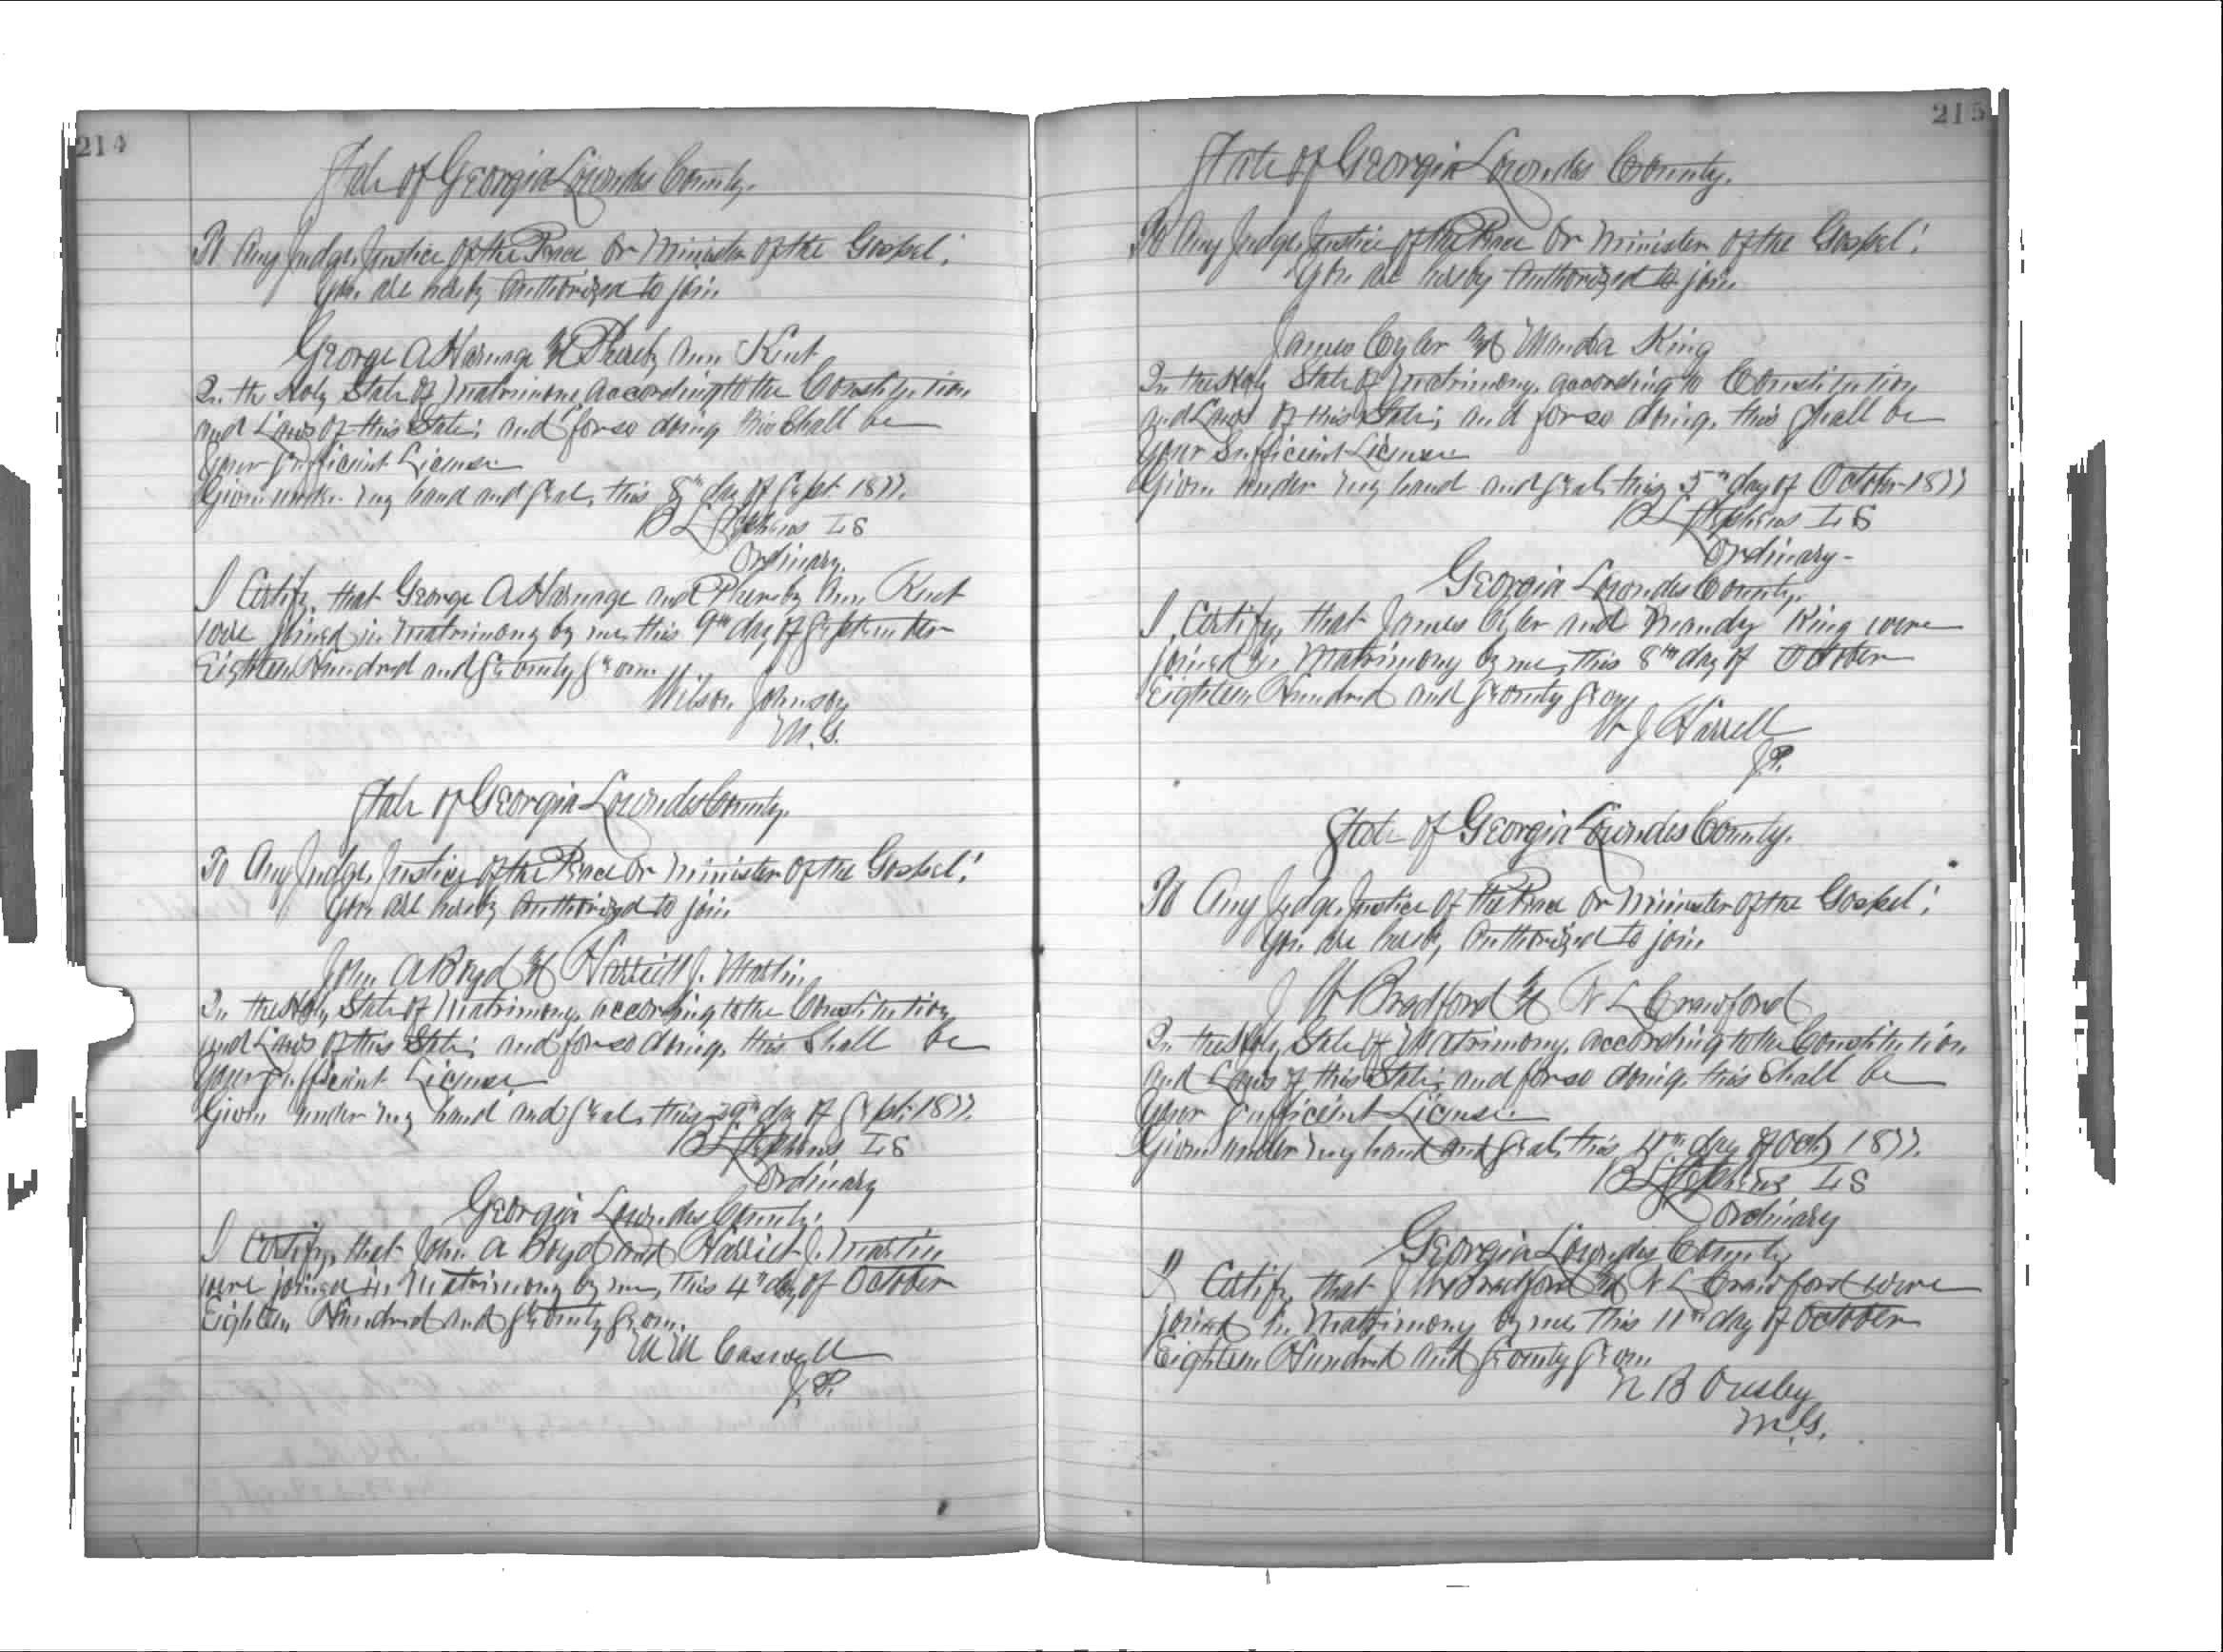 214
State of Georgia Lowndes County.
To Any Judge, Justice of the Peace Or Minister of the Gospel:
You are hereby Authorized to join
George A Harnage & Phereby Ann Kent
In the Holy State of Matrimony according to the Constitution
and Laws of this State; and for so doing this Shall be
Your Sufficient License
Given under my hand and Seal, this 8th day of Sept 1877.
B L Stephens L S
Ordinary.
I Certify, that George A Harnage and Phereby Ann Kent
were joined in Matrimony by me, this 9th day of September
Eighteen Hundred and Seventy Seven.
Wilson Johnson
M.G.
State of Georgia Lowndes County.
To Any Judge, Justice of the Peace Or Minister of the Gospel:
You are hereby Authorized to join
John A Boyd & Harriett J. Martin
In the Holy State of Matrimony, according to the Constitution
and Laws of this State; and for so doing, this Shall be
Your Sufficient License
Given under my hand and Seal, this 29th day of Sept. 1877.
B L Stephens L S
Ordinary
Georgia Lowndes County.
I Certify, that John A Boyd and Harriet J. Martin
were joined in Matrimony by me, this 4th day of October
Eighteen Hundred and Seventy Seven.
M M Caswell
J.P.
215
State of Georgia Lowndes County.
To Any Judge, Justice of the Peace Or Minister of the Gospel:
You are hereby Authorized to join
James Cyler & Manda King
In the Holy State of Matrimony, according to Constitution
and Laws of this State; and for so doing, this Shall be
Your Sufficient License
Given under my hand and Seal, this 5th day of October 1877
B L Stephens L S
Ordinary-
Georgia Lowndes County.
I Certify, that James Cyler and Mandy King were
joined in Matrimony by me, this 8th day of October
Eighteen Hundred and Seventy Seven
W J Harrell
J.P.
State of Georgia Lowndes County.
To Any Judge, Justice of the Peace Or Minister of the Gospel:
You are hereby Authorized to join
J W Bradford & N L Crawford
In the Holy State of Matrimony, according to the Constitution
and Laws of this State; and for so doing, this Shall be
Your Sufficient License
Given under my hand and Seal, this 11th day of Oct, 1877.
B L Stephens L S
Ordinary
Georgia Lowndes County
I Certify, that J W Bradford & N L Crawford were
joined in Matrimony by me, this 11th day of October
Eighteen Hundred and Seventy Seven
N B Ousley
M.G.